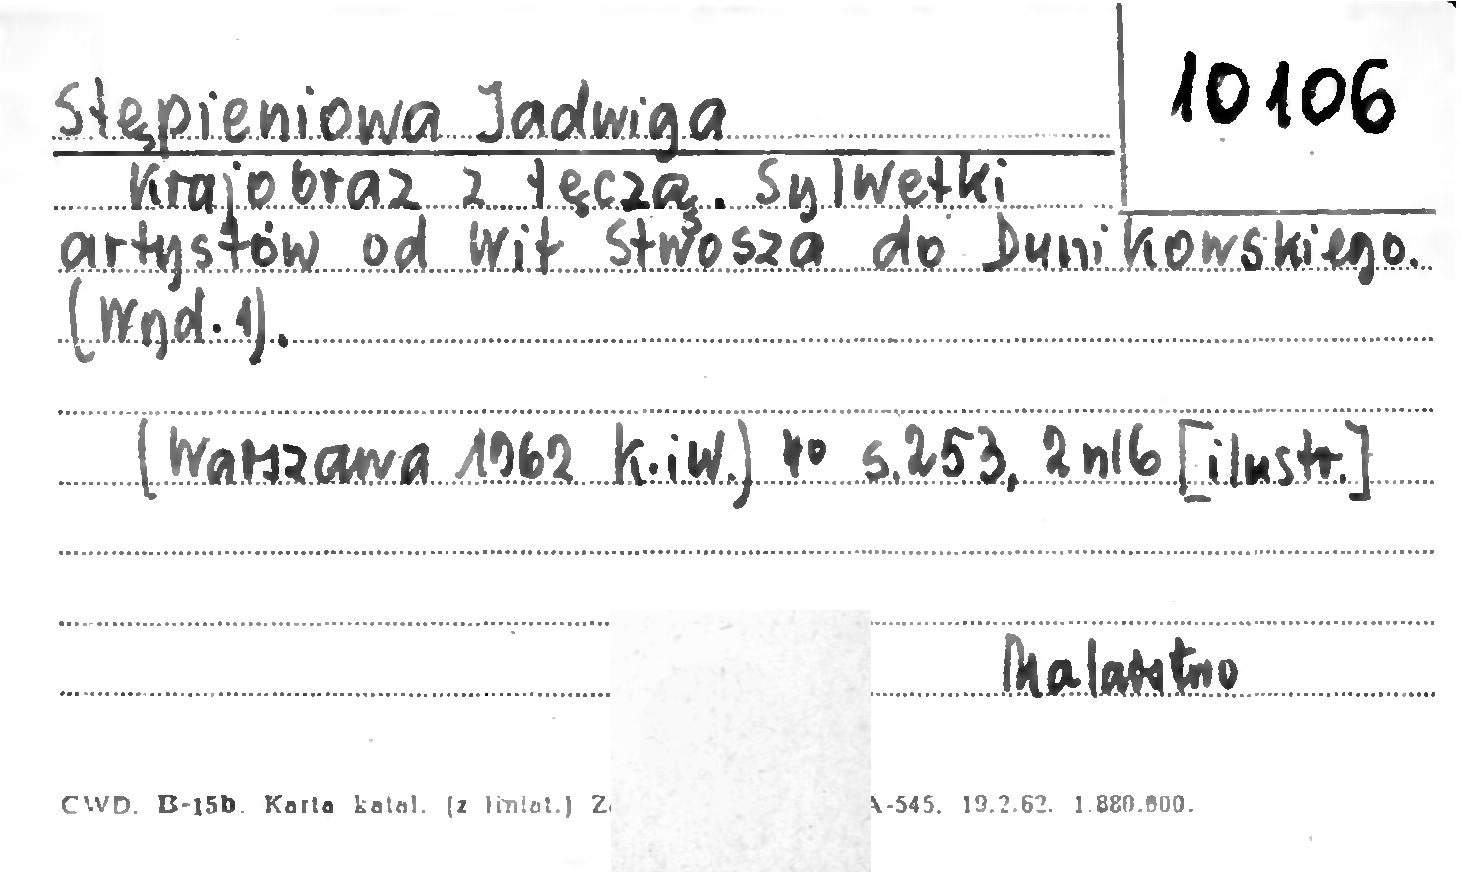 10106
Stępieniowa Jadwiga
Krajobraz z tęczą. Sylwetki
artystów od Wit Stwosza do Dunikowskiego.
(Wyd. 1).
(Warszawa 1962 K.iW.) 4o s.253, 2 nlb [ilustr.]
Malarstwo
CWD. B-15b. Karta katal. (z liniat.) A-545. 19.2.62. 1.880.000.